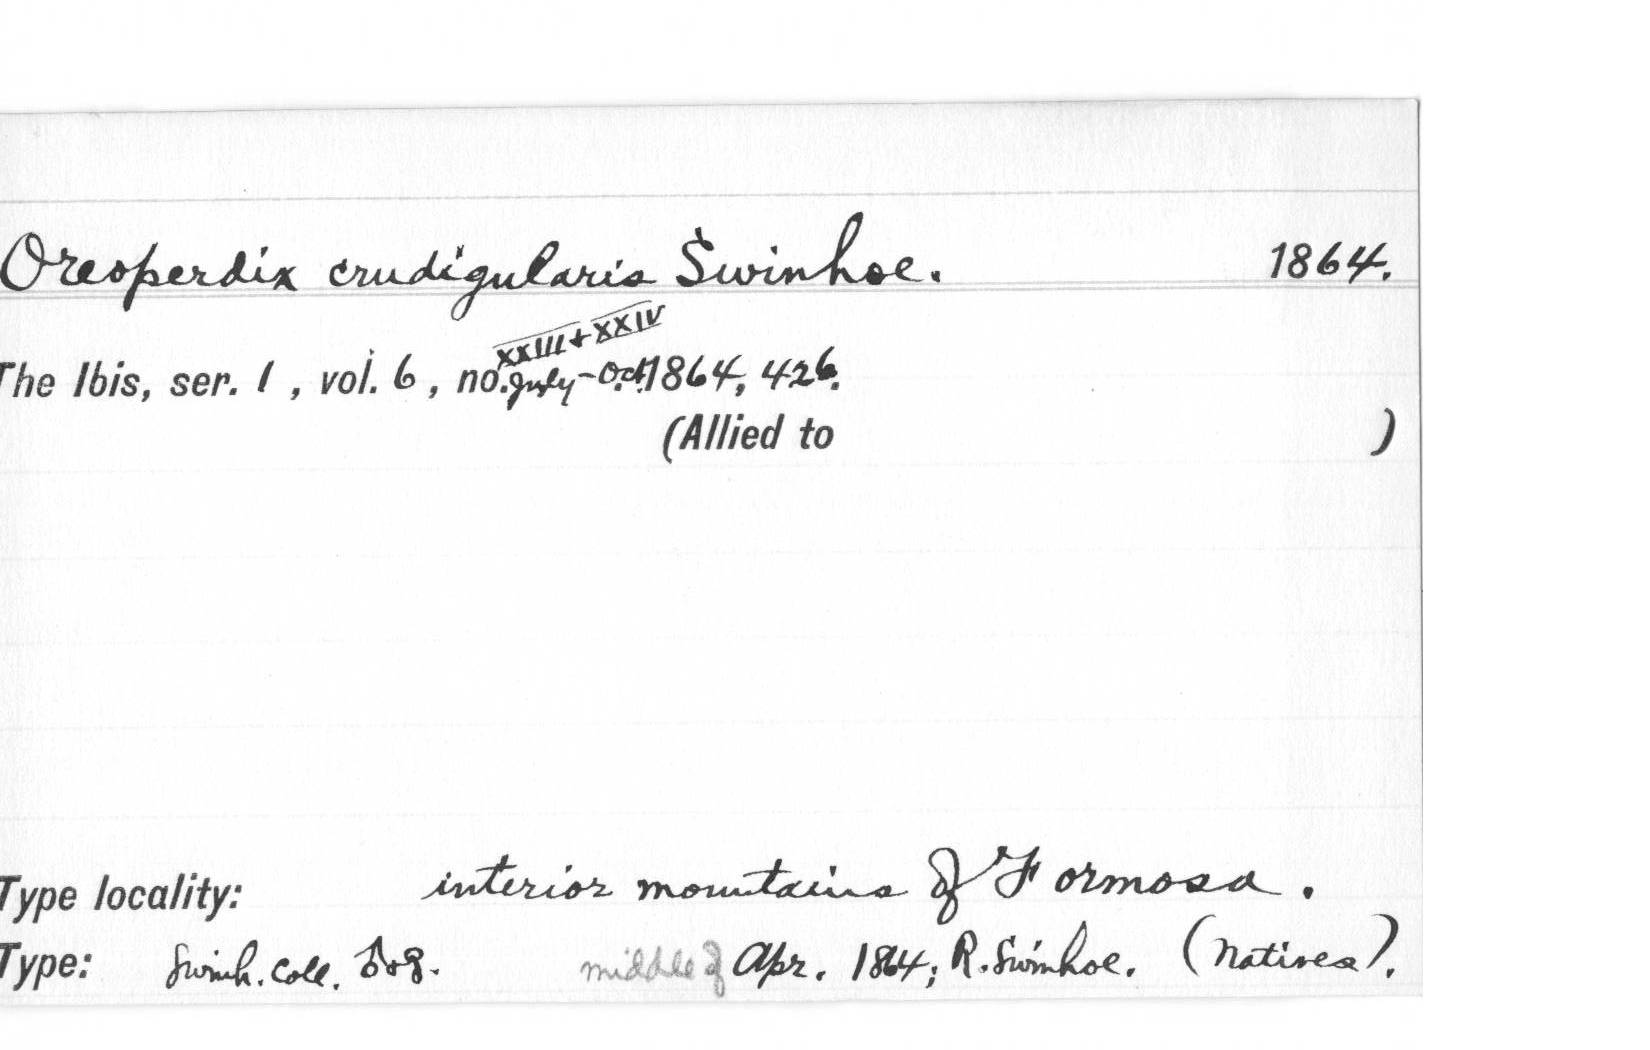 Oreoperdix crudigularis Swinhoe. 1864.
XXIII + XXIV
The Ibis, ser. 1, vol. 6, no. July-Oct. 1864, 426.
(Allied to )
Type locality: interior mountains of Formosa.
Type: Swinh. Coll. middle of Apr. 1864; R. Swinhoe. (Natives).